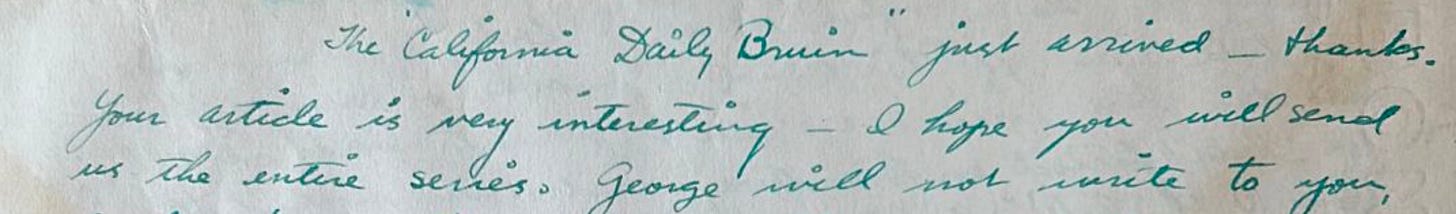 The "California Daily Bruin" just arrived – thanks.
Your article is very interesting – I hope you will send
us the entire series. George will not write to you,